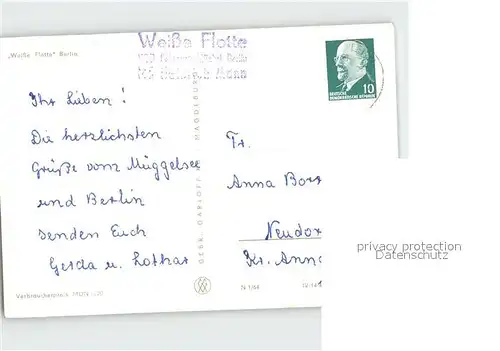 „Weiße Flotte“ Berlin
Weiße Flotte
MS Heinrich Mann
10
DEUTSCHE
DEMOKRATISCHE REPUBLIK
Ihr Lieben!
Die herzlichsten
Grüße vom Müggelsee
und Berlin
senden Euch
Gerda u. Lothar
GEBR. GARLOFF MAGDEBURG
Fr.
Anna Bor
Neudor
Kr. Anna
Verbraucherpreis MDN
N 1/64
privacy protection
Datenschutz